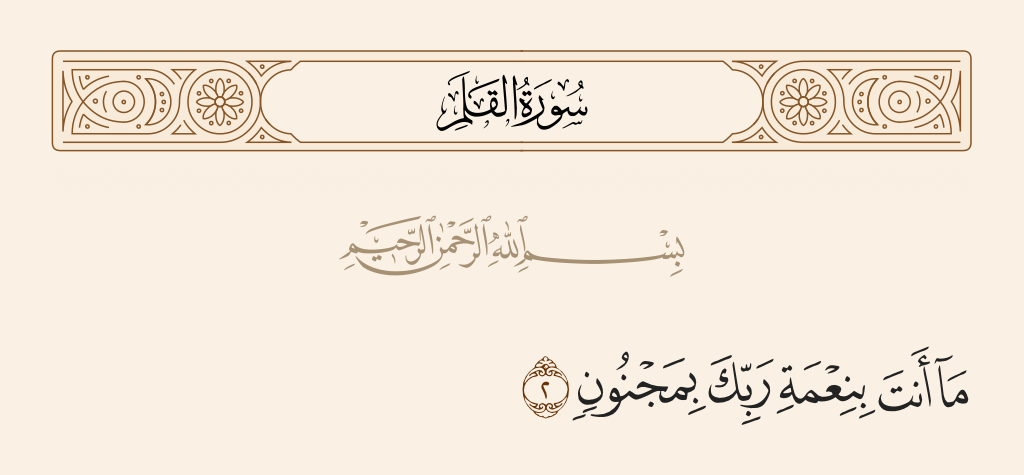 سُورَةُ القَلَمِ
بِسْمِ ٱللَّهِ ٱلرَّحْمَٰنِ ٱلرَّحِيمِ
مَآ أَنتَ بِنِعْمَةِ رَبِّكَ بِمَجْنُونٍ ٢